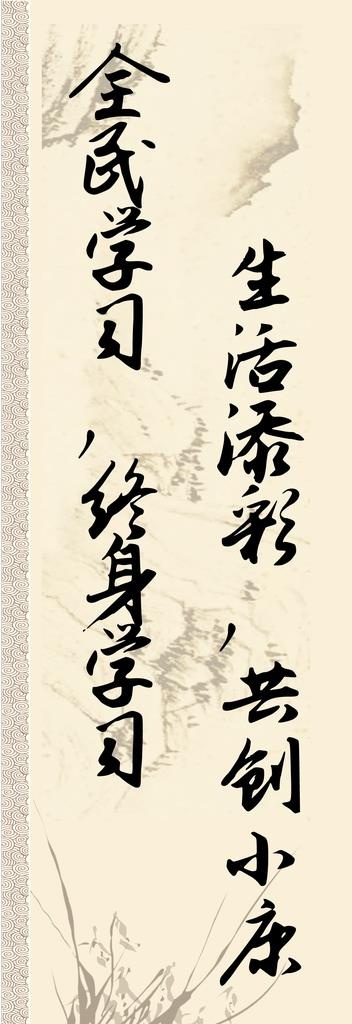 全民学习，终身学习
生活添彩，共创小康